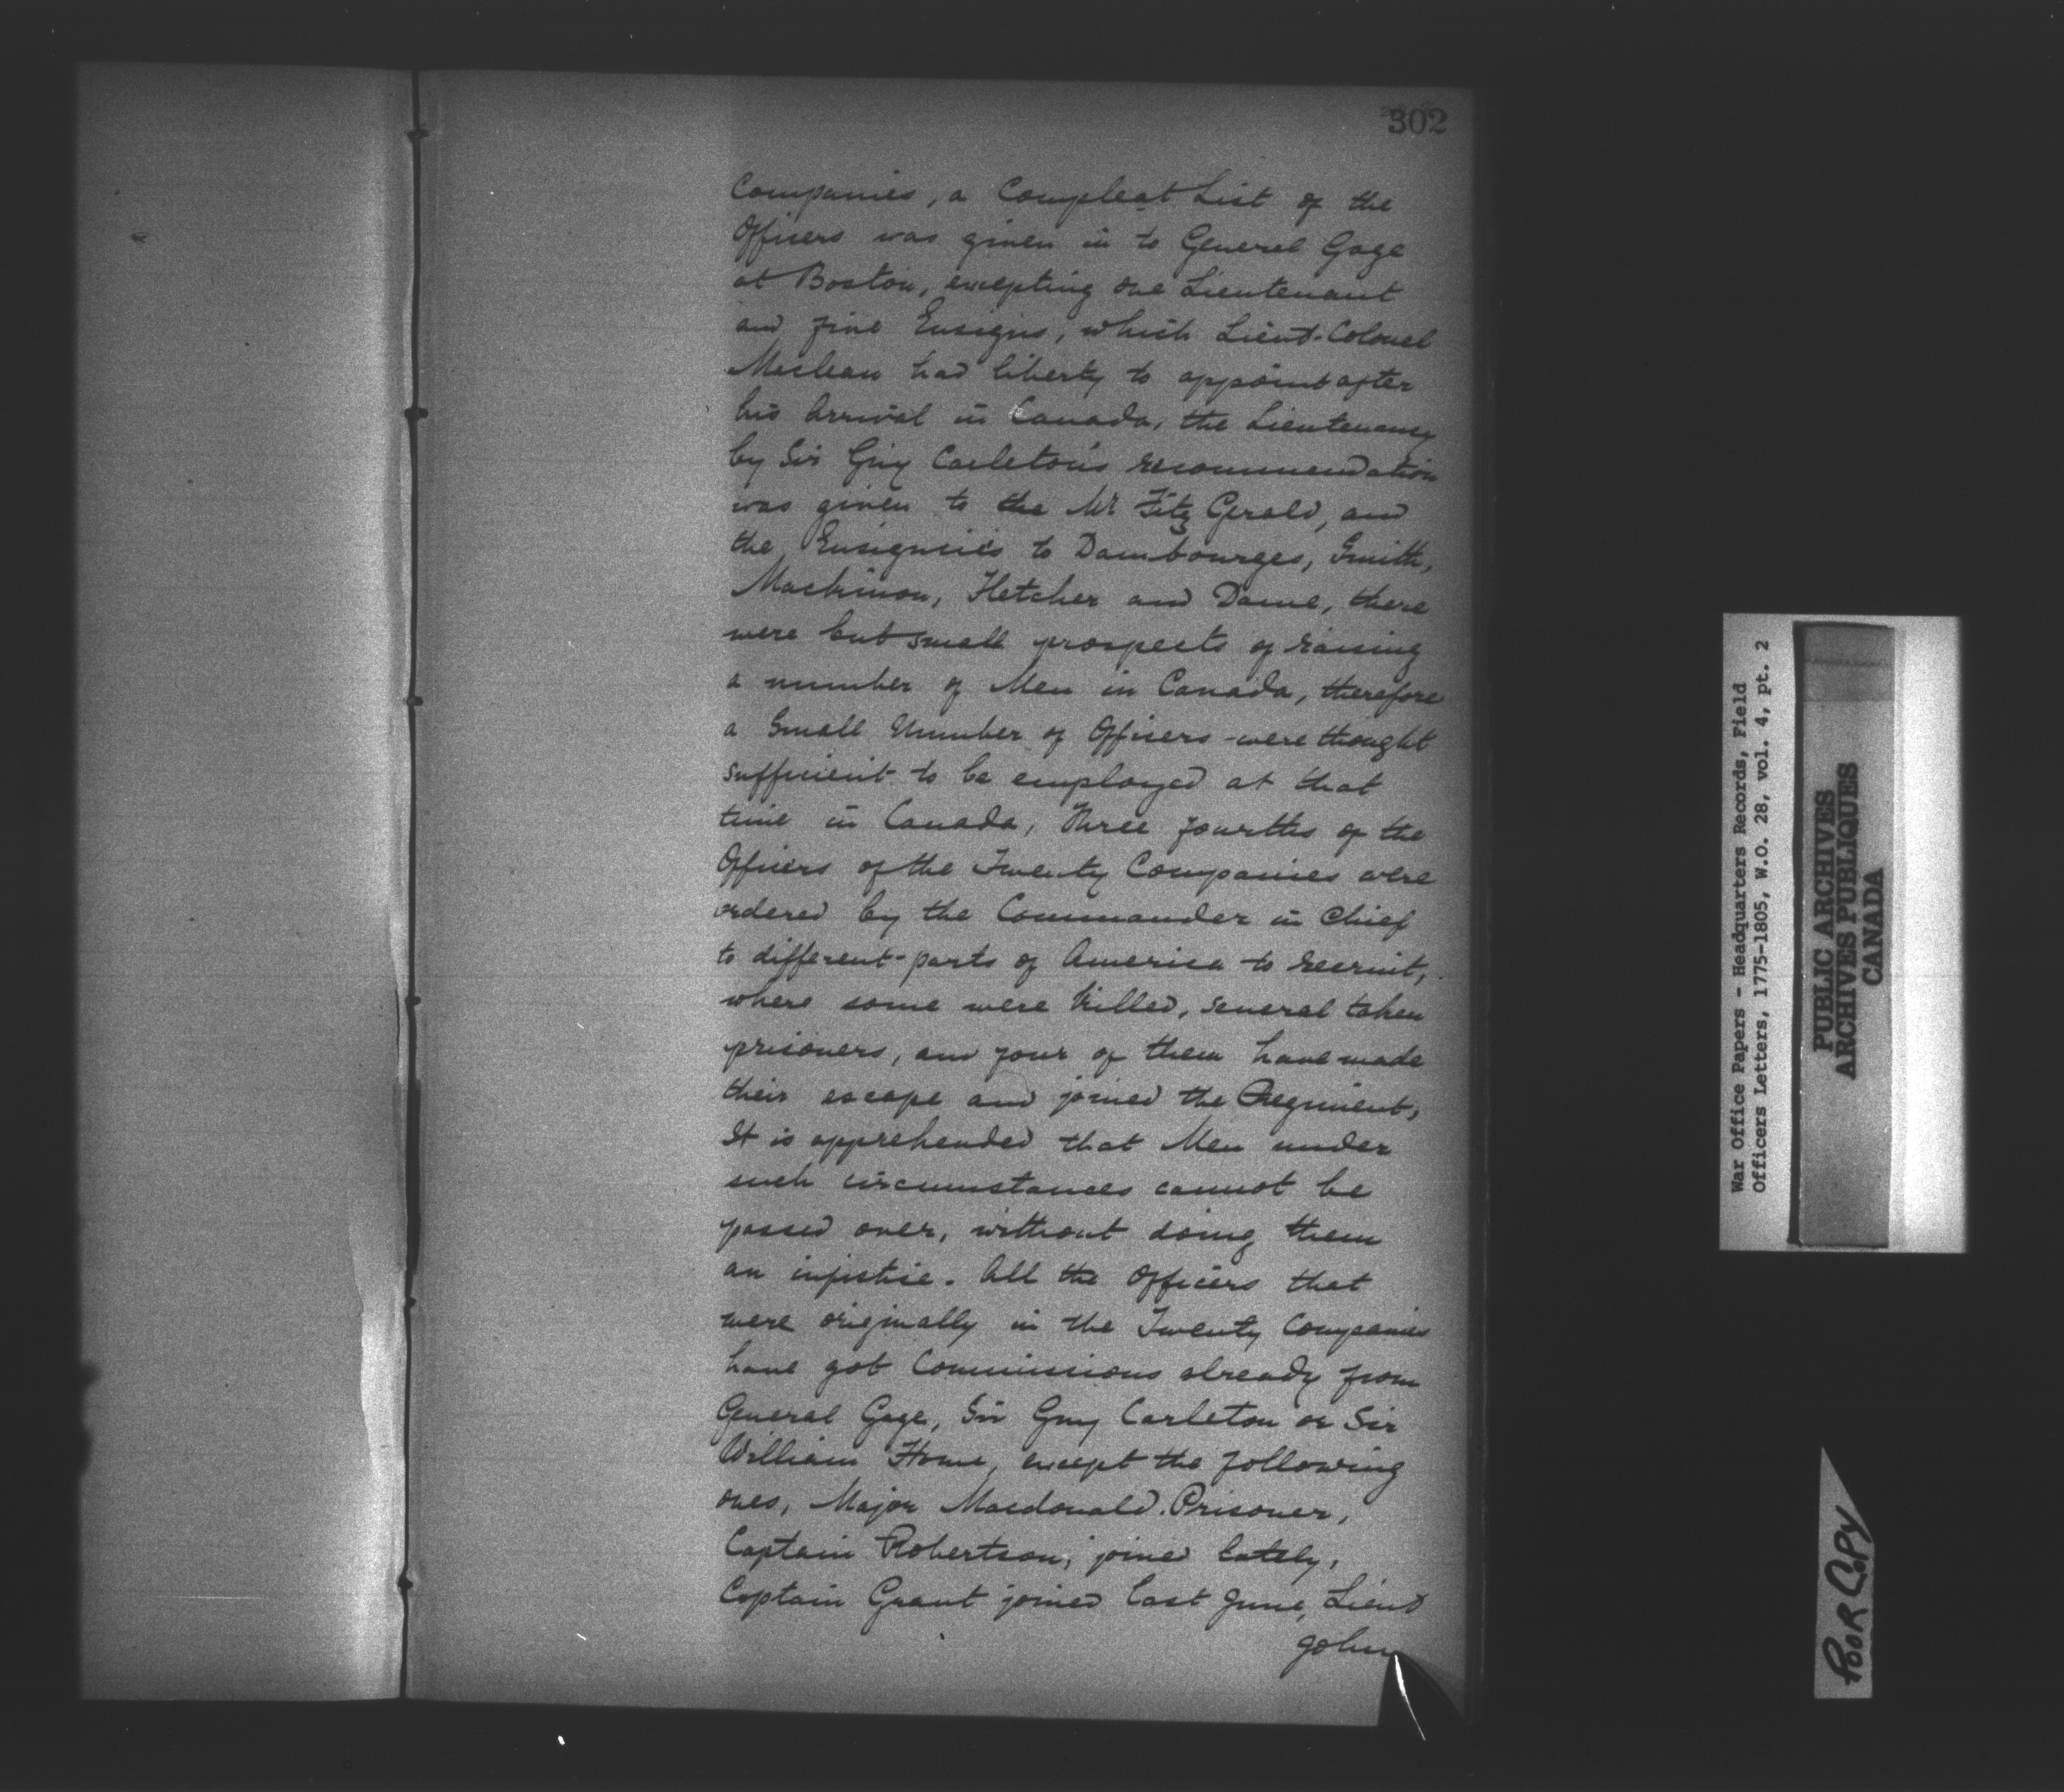 302
Companies, a Compleat List of the
Officers was given in to General Gage
at Boston, excepting one Lieutenant
and five Ensigns, which Lieut-Colonel
Maclean had liberty to appoint after
his Arrival in Canada, the Lieutenancy
by Sir Guy Carleton's recommendation
was given to the Mr Fitz Gerald, and
the Ensigncies to Dambourges, Smith,
Mackinon, Fletcher and Dame, there
were but small prospects of raising
a number of Men in Canada, therefore
a Small Number of Officers were thought
sufficient to be employed at that
time in Canada, Three fourths of the
Officers of the Twenty Companies were
ordered by the Commander in Chief
to different parts of America to recruit,
where some were killed, several taken
prisoners, and four of them have made
their escape and joined the Regiment,
It is apprehended that Men under
such circumstances cannot be
passed over, without doing them
an injustice. All the Officers that
were originally in the Twenty Companies
have got Commissions already from
General Gage, Sir Guy Carleton or Sir
William Howe, except the following
ones, Major Macdonald. Prisoner,
Captain Robertson, joined lately,
Captain Grant joined last June, Lieut
John
War Office Papers - Headquarters Records, Field
Officers Letters, 1775-1805, W.O. 28, vol. 4, pt. 2
PUBLIC ARCHIVES
ARCHIVES PUBLIQUES
CANADA
POOR COPY